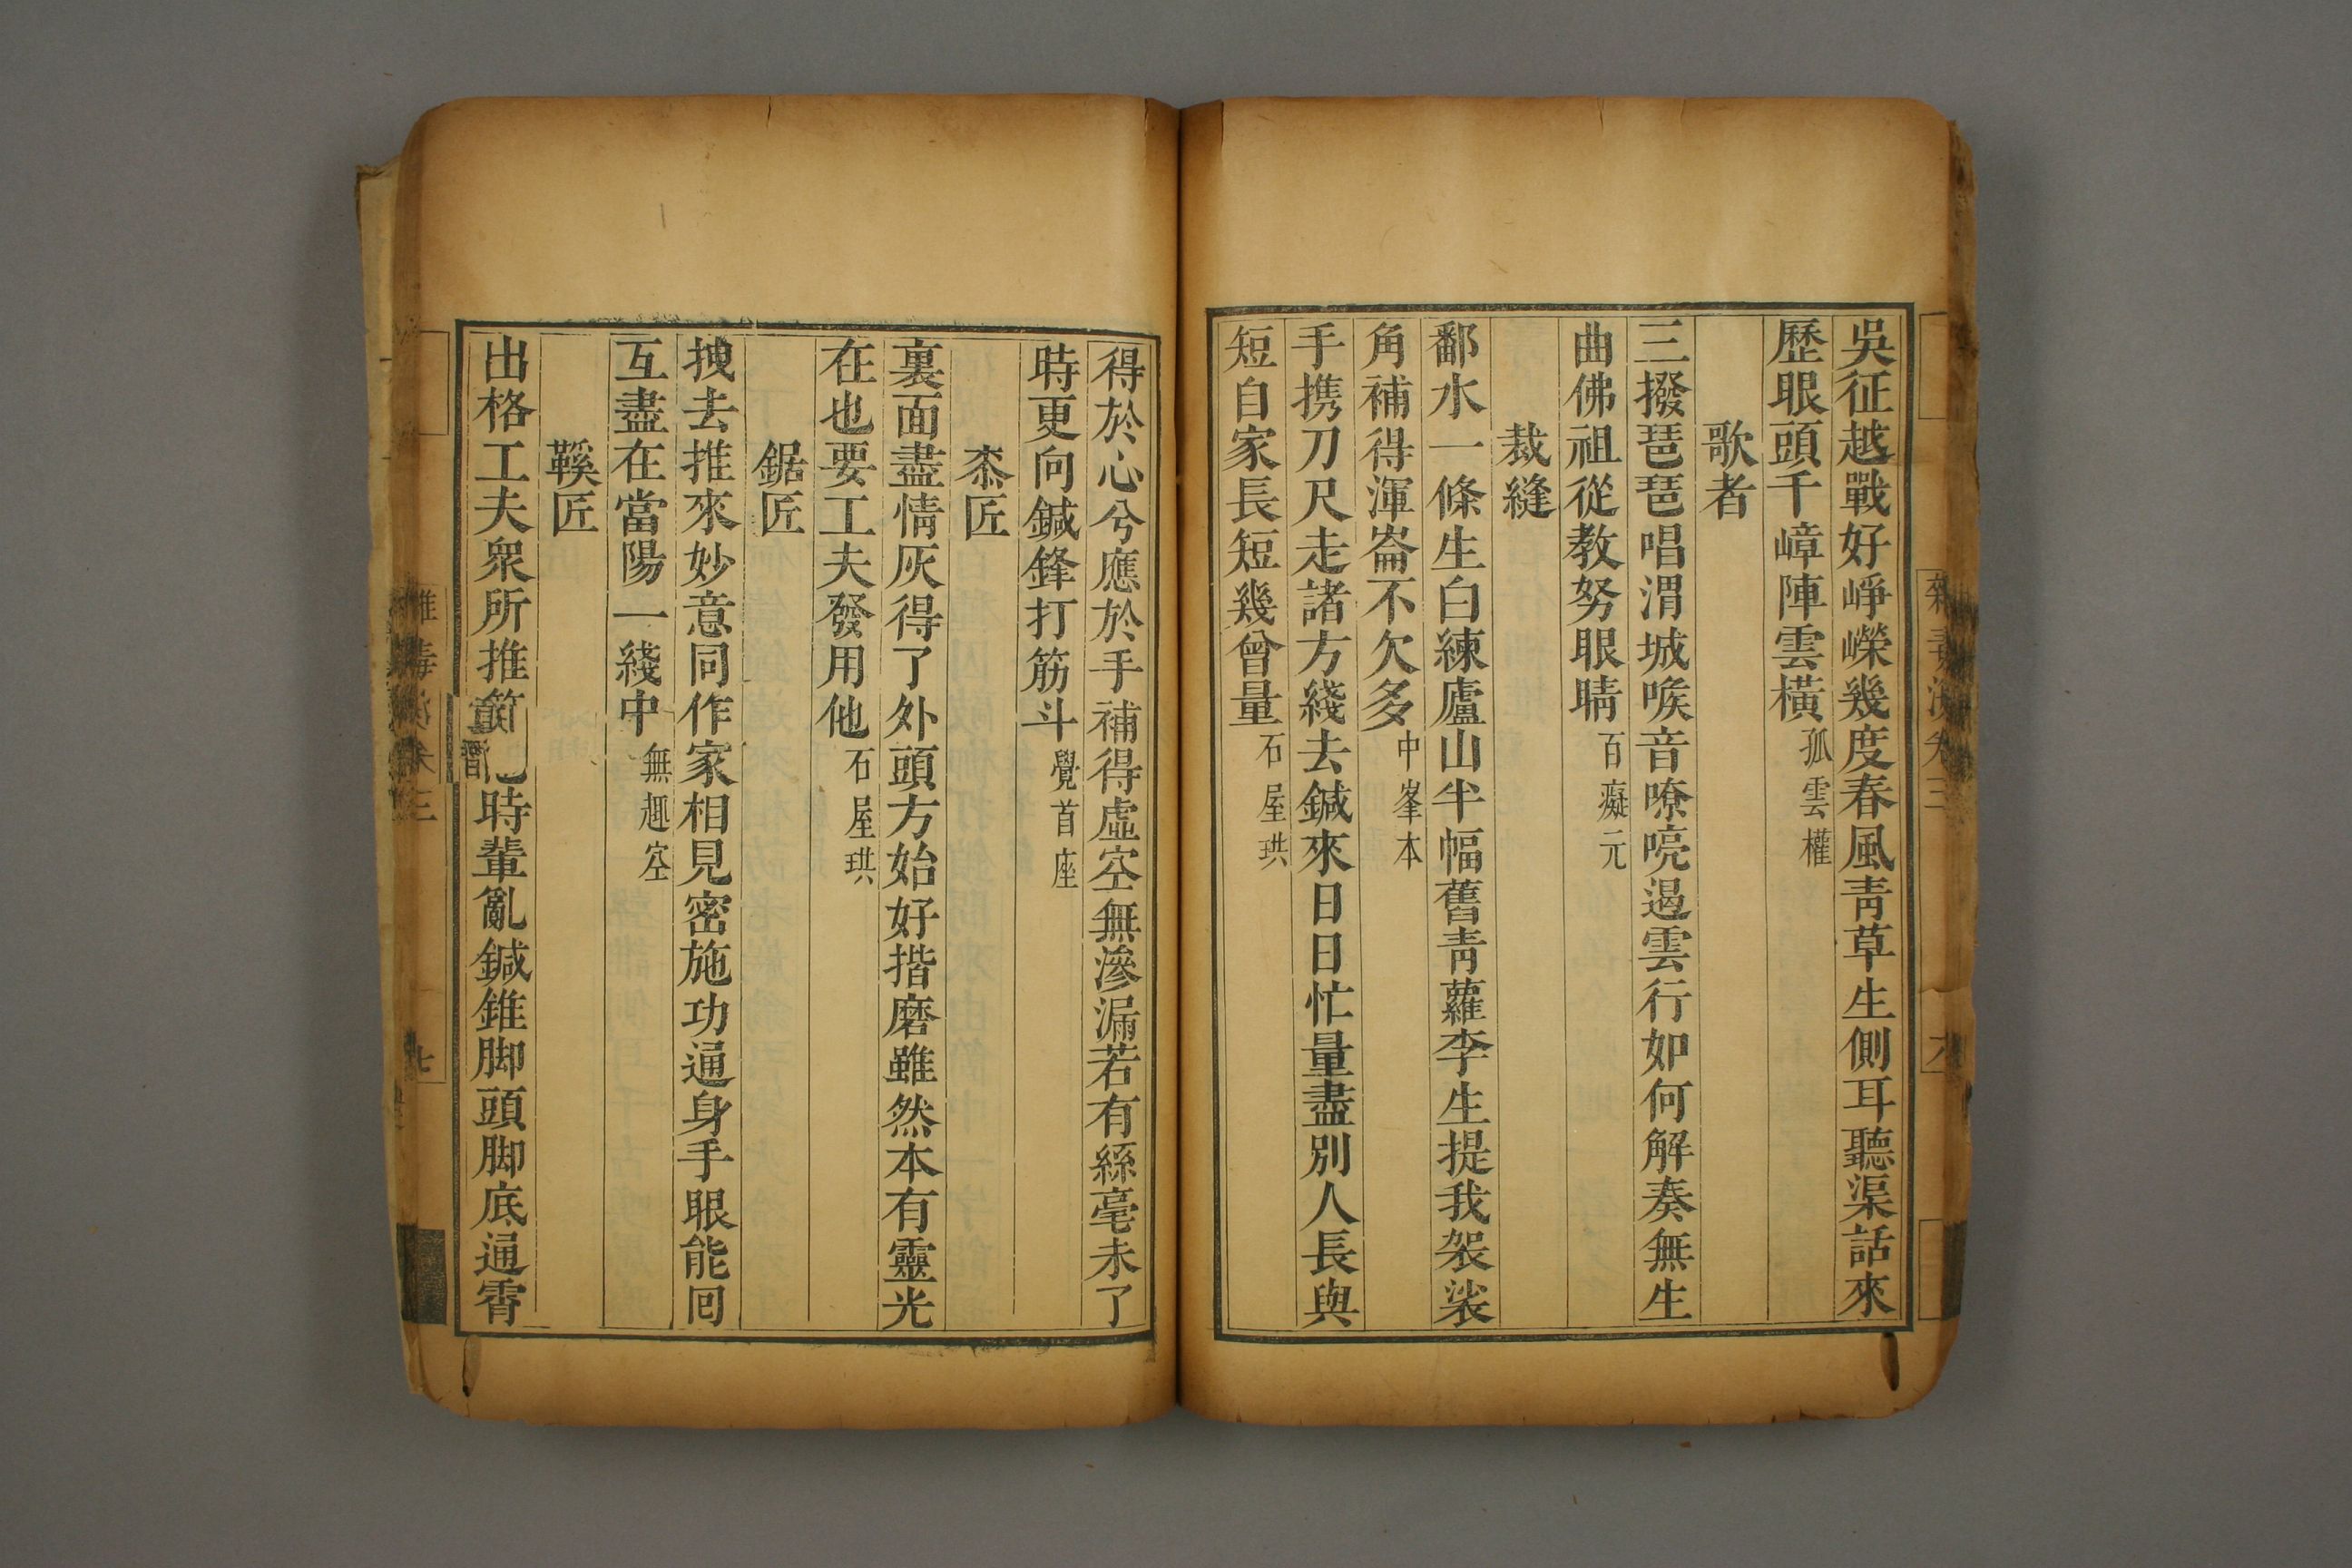 吳征越戰好崢嶸幾度春風青草生側耳聽渠話來
歷眼頭千嶂陣雲橫孤雲權
歌者
三撥琵琶唱渭城喉音嘹喨遏雲行如何解奏無生
曲佛祖從教努眼睛百癡元
裁縫
鄱水一條生白練廬山半幅舊青蘿李生提我袈裟
角補得渾崙不欠多中峯本
手携刀尺走諸方綫去鍼來日日忙量盡別人長與
短自家長短幾曾量石屋珙
得於心兮應於手補得虛空無滲漏若有絲毫未了
時更向鍼鋒打筋斗覺首座
桼匠
裏面盡情灰得了外頭方始好揩磨雖然本有靈光
在也要工夫發用他石屋珙
鋸匠
拽去推來妙意同作家相見密施功通身手眼能回
互盡在當陽一綫中無趣空
鞵匠
出格工夫衆所推時輩亂鍼錐脚頭脚底通霄
卷三
七